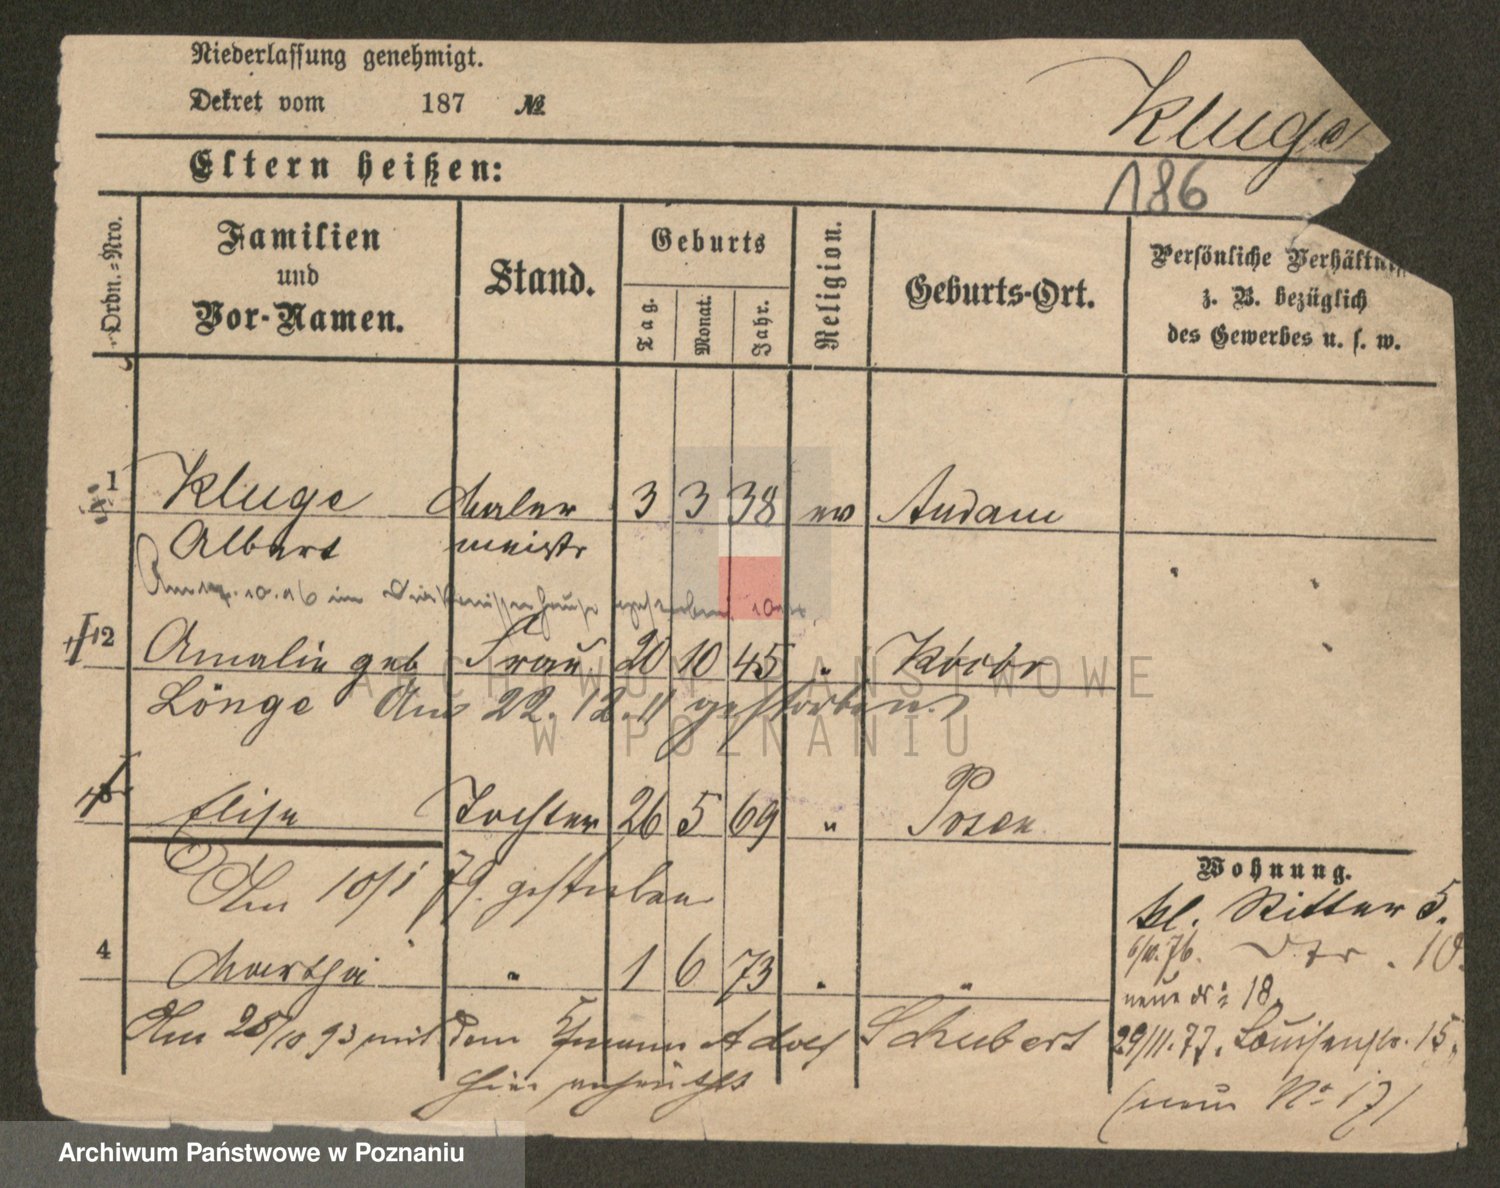 Niederlassung genehmigt.
Dekret vom 187 №
Kluge
Eltern heißen:
186
Ordn.-Nro.
Familien und Vor-Namen.
Stand.
Geburts
Tag.
Monat.
Jahr.
Religion.
Geburts-Ort.
Persönliche Verhältni
z. B. bezüglich
des Gewerbes u. s. w.
1 Kluge Maler 3 3 38 ev
Albert meistr
Am 10. 16 im gestorben
2 Amalie geb Frau 20 10 45 "
Lönge Am 22. 12. 11 gestorben
Elise Tochter 26 5 69 " Posen
Am 10/1 79. gestorben
4 Martha " 1 6 73 " "
Am 28/10 93 mit dem Adolf Schubert
hier
Wohnung.
kl. Ritter 5.
6/10. 76. 10.
neue Nr 18.
29/11. 77. Louisenstr. 15.
(neue No 17)
ARCHIWUM PAŃSTWOWE
W POZNANIU
Archiwum Państwowe w Poznaniu